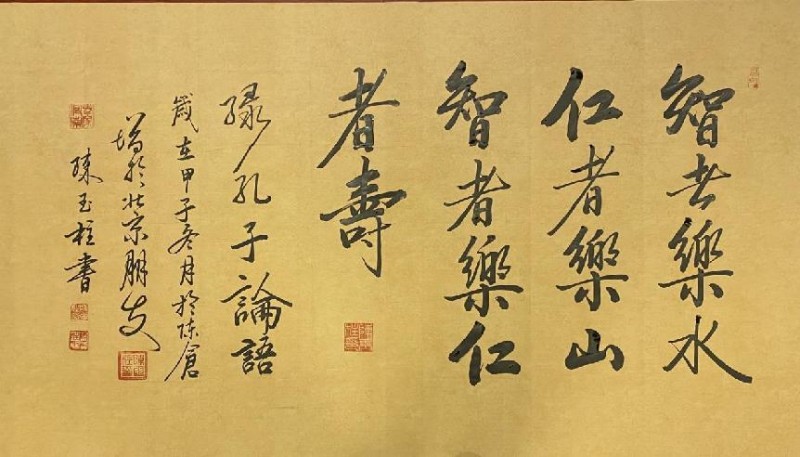 智者樂水
仁者樂山
智者樂仁
者壽
錄孔子論語
歲在甲子冬月於陈倉
增於北京朋友
陳玉柱書